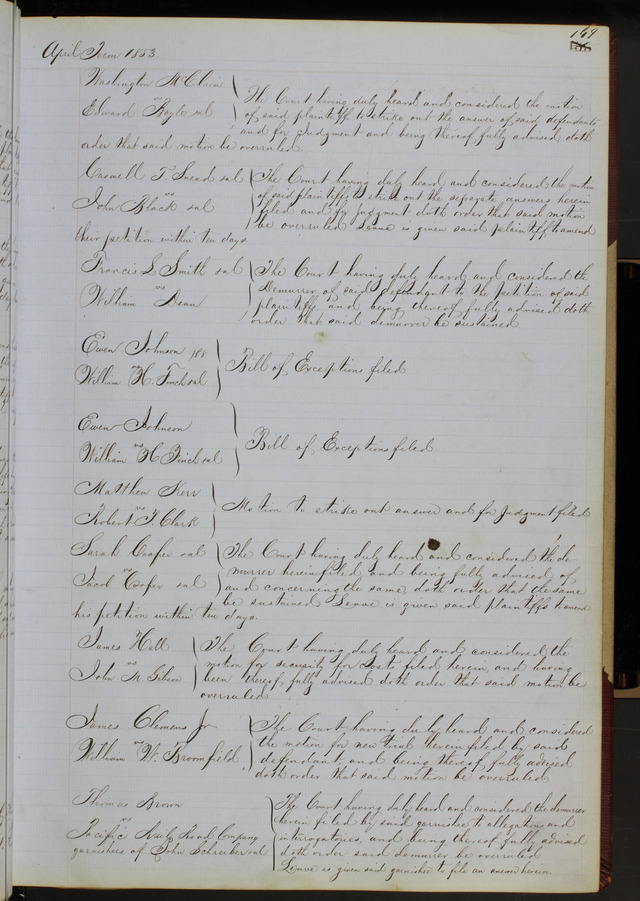 169
April Term 1853.
Washington McClain
vs
Edward Hoyle et al
The Court having duly heard and considered the motion
of said plaintiff to strike out the answer of said defendants
and for Judgment and being thereof fully advised doth
order that said motion be overruled.
Caswell T Snead et al
vs
John Black et al
The Court having duly heard and considered the motion
of said plaintiff to strike out the seperate answers herein
filed and for judgment doth order that said motion
be overruled Leave is given said plaintiff to amend
their petition within ten days
Francis L Smith et al
vs
William Dean
The Court having duly heard and considered the
Demurrer of said defendant to the petition of said
plaintiffs and being thereof fully advised doth
order that said demurrer be sustained
Owen Johnson
vs
William H. Finch et al
Bill of Exceptions filed
Owen Johnson
vs
William H Finch et al
Bill of Exceptions filed.
Matthew Kerr
vs
Robert F Clark
Motion to strike out answer and for Judgment filed
Sarah Cosper et al
vs
Jacob Cosper et al
The Court having duly heard and considered the de
murrer herein filed and being fully advised of
and concerning the same doth order that the same
be sustained Leave is given said plaintiffs to amend
his petition within ten days.
James Hall
vs
John M. Gibson
The Court having duly heard and considered the
motion for security for Costs filed herein, and having
been thereof fully advised doth order that said motion be
overruled
James Clemens Jr
vs
William W. Bromfield
The Court having duly heard and considered
the motion for new trial herein filed by said
defendant, and being thereof fully advised
doth order that said motion be overruled
Thomas Brown
vs
Pacific Rail Road Company
garnishees of John Schreiber et al
The Court having duly heard and considered the demurrer
herein filed by said garnishee to allegations and
interrogatories, and being thereof fully advised
doth order said demurrer be overruled
Leave is given said garnishee to file an answer herein.